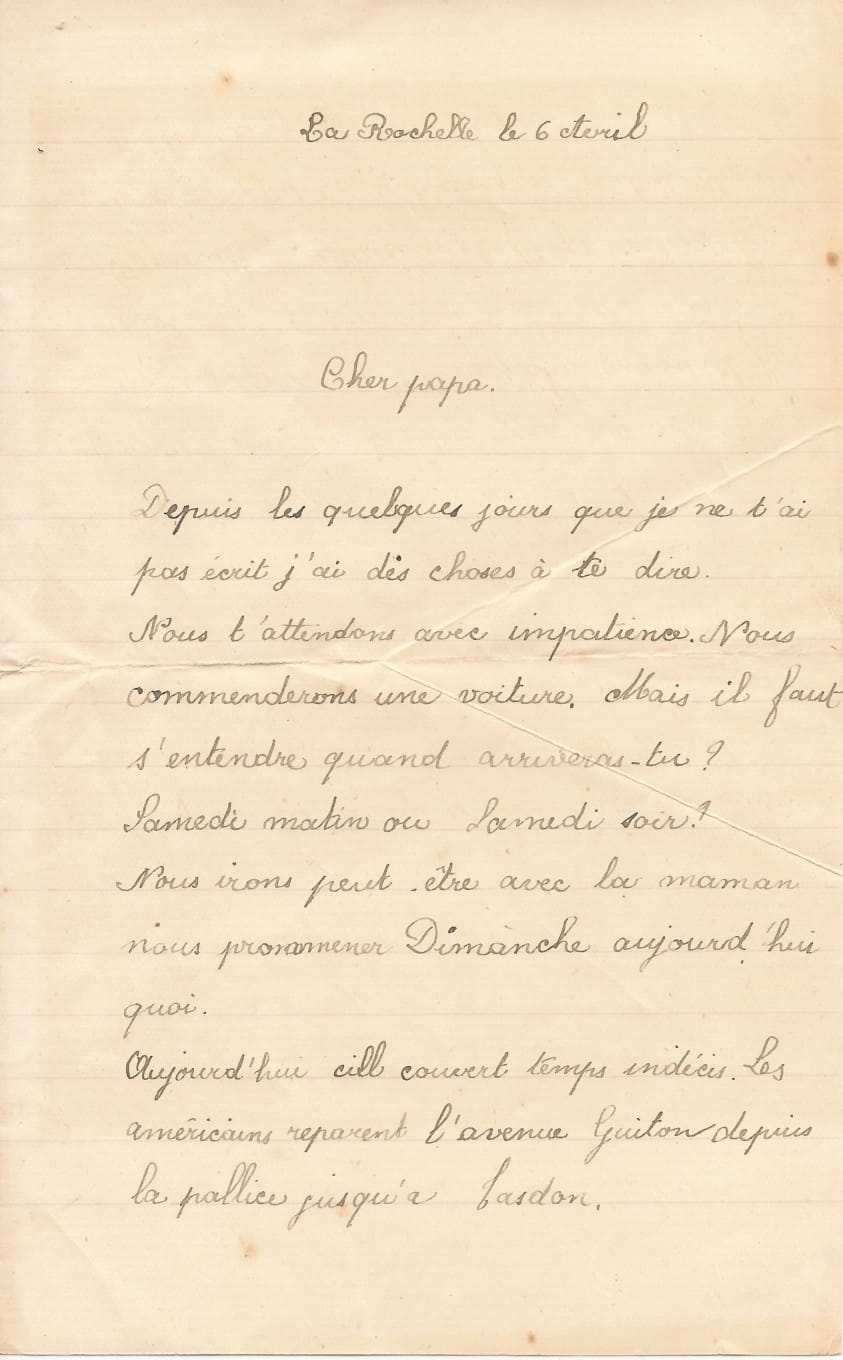 La Rochelle le 6 Avril
Cher papa.
Depuis les quelques jours que je ne t'ai
pas écrit j'ai des choses à te dire.
Nous t'attendons avec impatience. Nous
commenderons une voiture. Mais il faut
s'entendre quand arriveras-tu ?
Samedi matin ou Samedi soir ?
Nous irons peut-être avec la maman
nous promener Dimanche aujourd'hui
quoi.
Aujourd'hui ciell couvert temps indécis. Les
américains reparent l'avenue Guiton depuis
la pallice jusqu'a Tasdon.